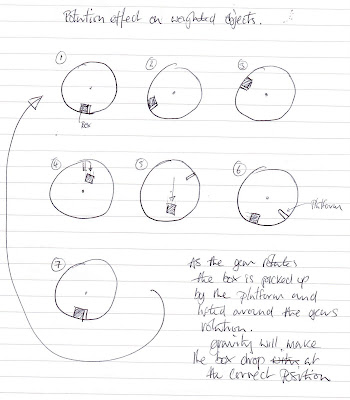 Rotation effect on weighted objects.
1
2
3
Box
4
5
6
Platform
7
As the gear rotates
the box is picked up
by the platform and
lifted around the gears
rotation.
gravity will make
the box drop at
the correct position